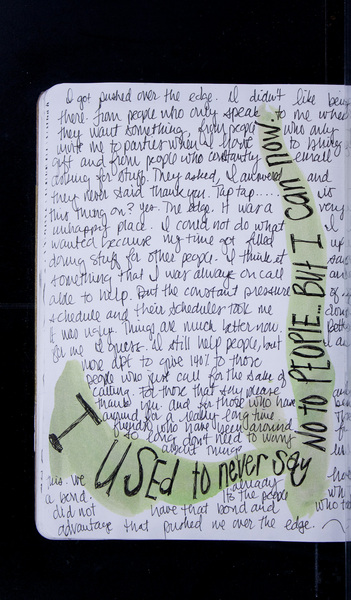 I got pushed over the edge. I didn't like being
there. from people who only speak to me when
they want something, from people who only
invite me to parties when I have to bring
gift and from people who constantly email
asking for stuff. They asked, I answered and
they never said thank you. Tap tap..... is
this thing on? Yes. The edge. It was a very
unhappy place. I could not do what
wanted because my time got filled
doing stuff for other people. I think it
something that I was always on call
able to help. But the constant pressure of
schedule and their schedules took me
It was ugly. Things are much better now.
For me I guess. I still help people, but
more apt to give 140% to those
people who just call for the sake of
calling. For those that say please
thank you. and for those who have
around for a really long time.
friends who have been around
so long don't need to worry
about things
this. we already
a bond. Its the people who
did not have that bond and who took
advantage that pushed me over the edge.
I USED to never say
NO TO PEOPLE... BUT I can now